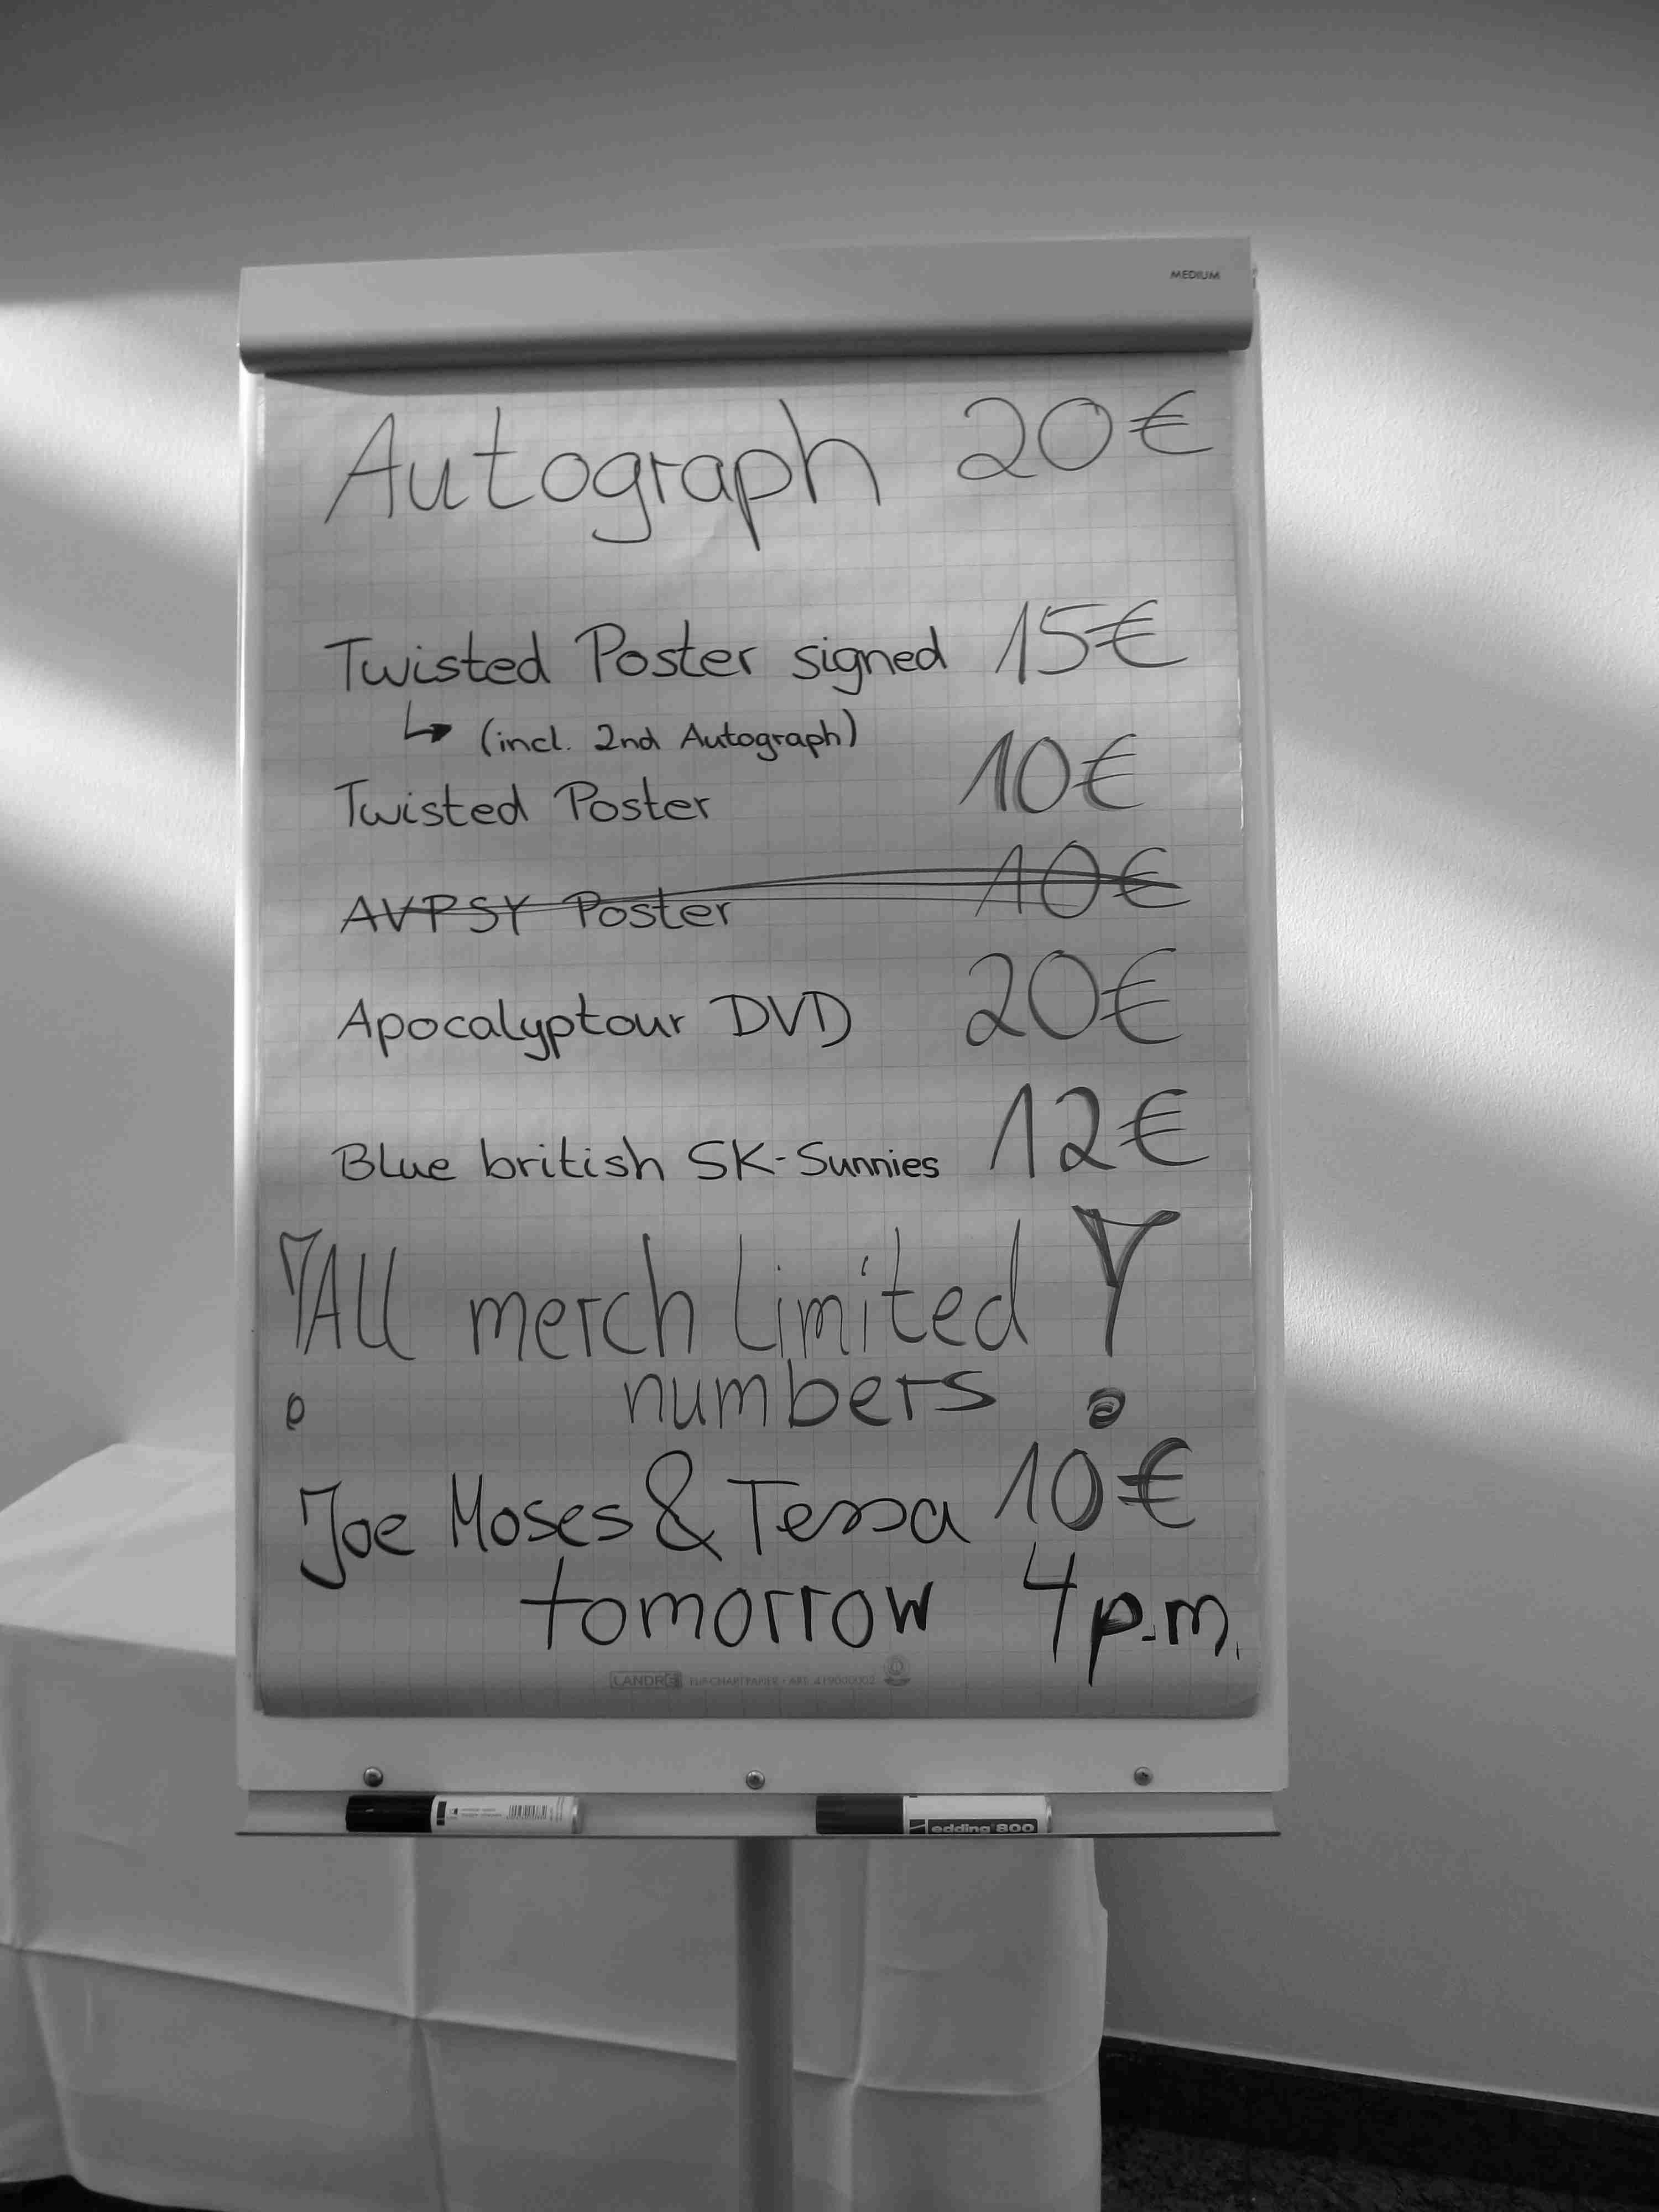 MEDIUM
Autograph 20€
Twisted Poster signed 15€
↳ (incl. 2nd Autograph)
Twisted Poster 10€
AVPSY Poster 10€
Apocalyptour DVD 20€
Blue british SK-Sunnies 12€
!All merch limited !
numbers
Joe Moses & Tessa 10€
tomorrow 4 p.m.
LANDRÉ FLIPCHARTPAPIER · ART. 419000002
edding 800